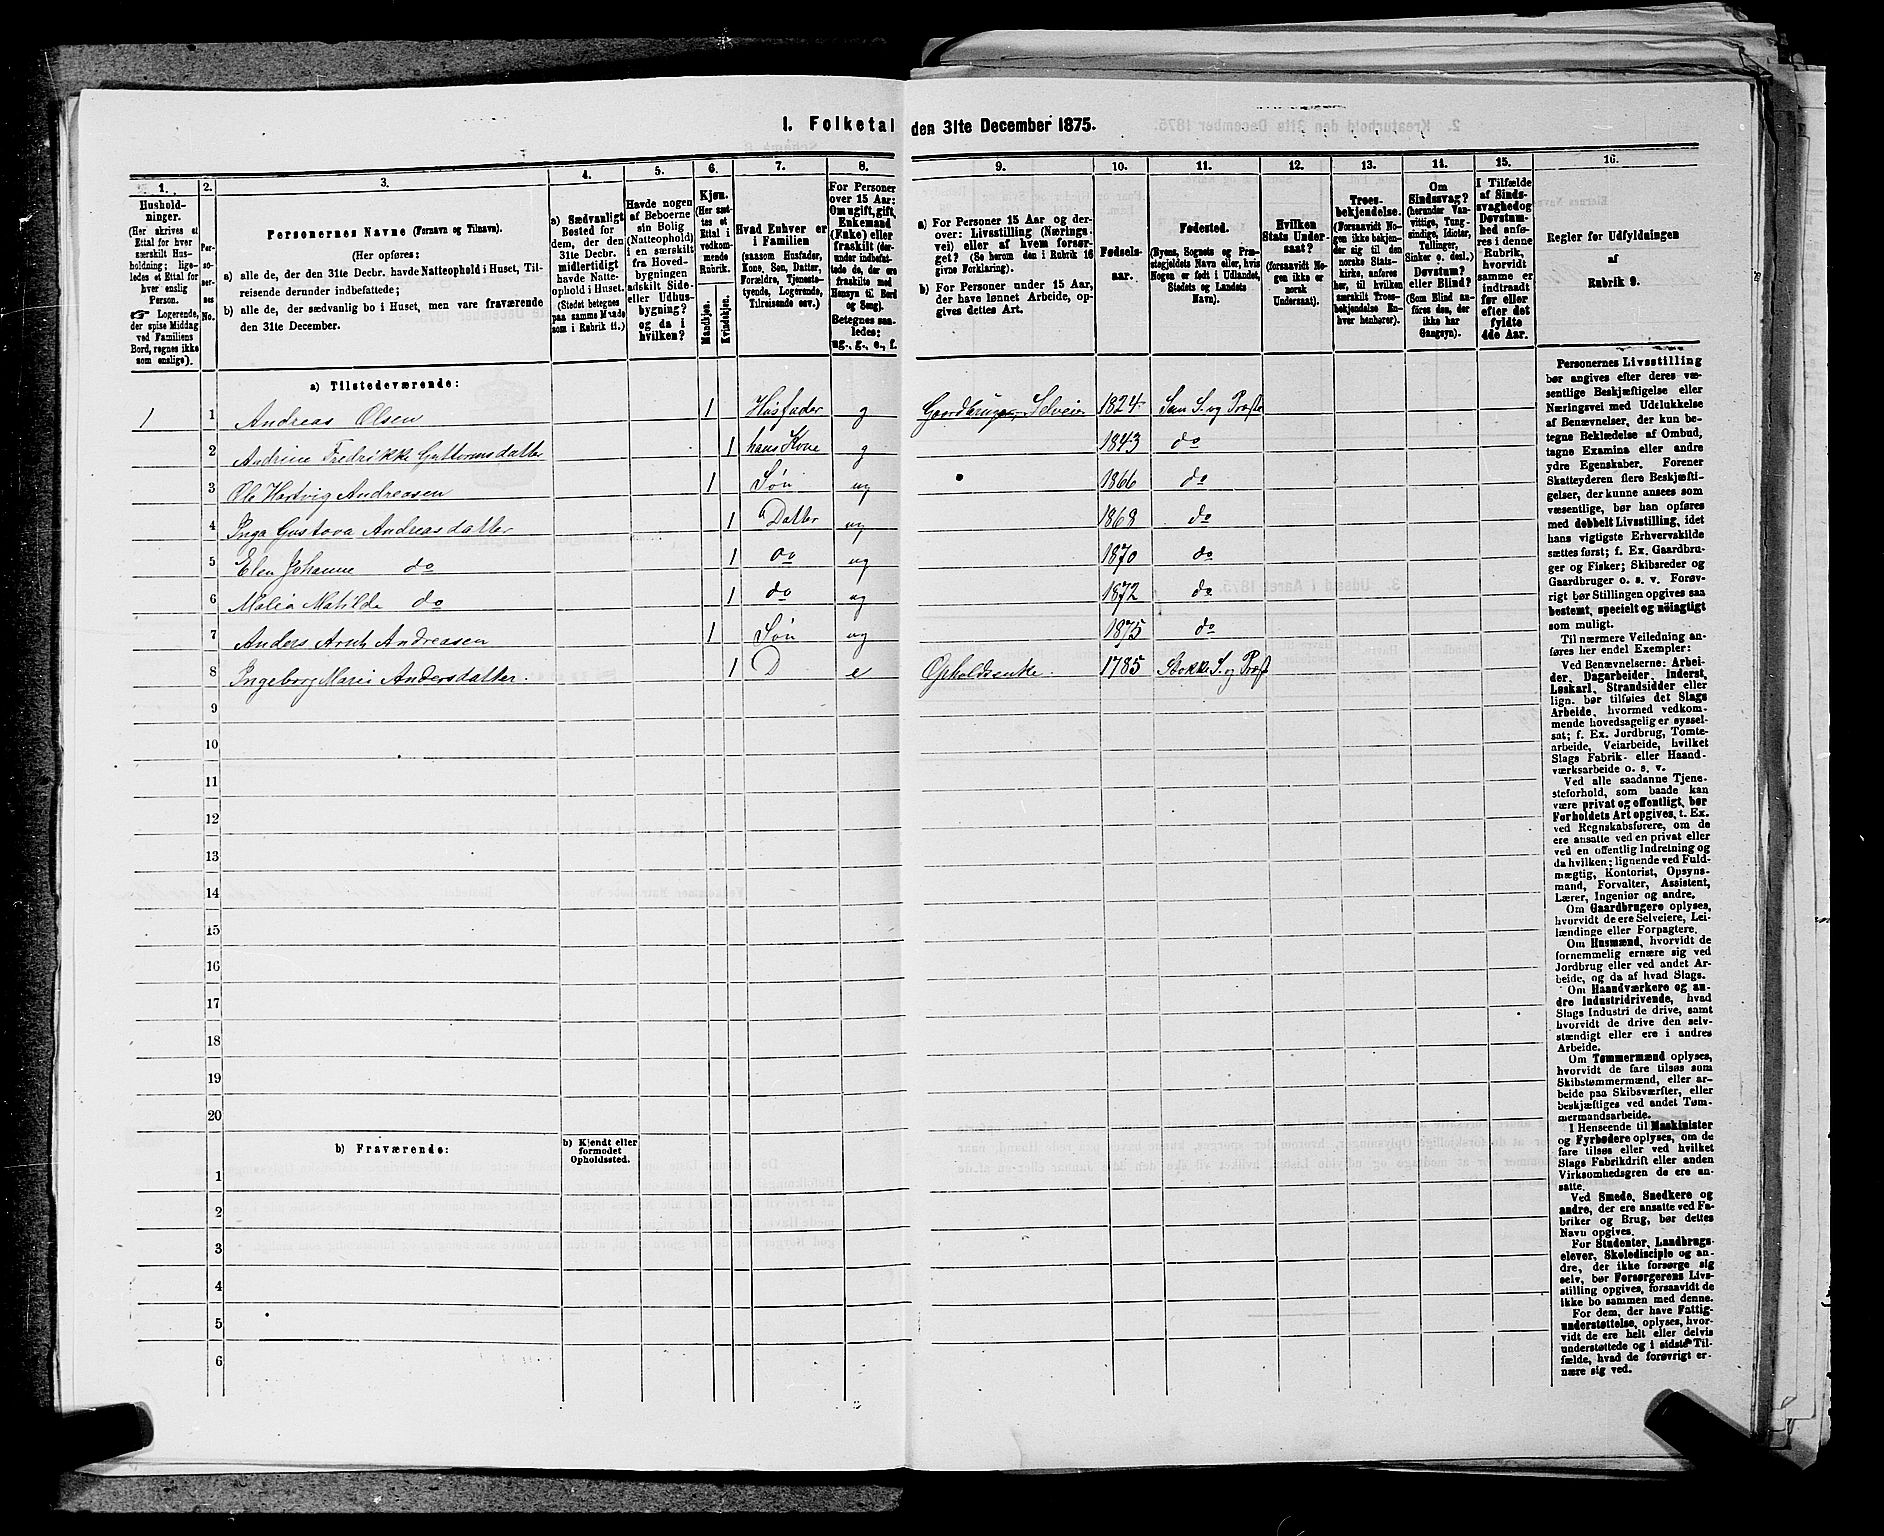 I. Folketal den 31te December 1875.
1. 2. 3. 4. 5. 6. 7. 8. 9. 10. 11. 12. 13. 14. 15. 16.
Hushold-
ninger.
(Her skrives et
Ettal for hver
særskilt Hus-
holdning; lige-
ledes et Ettal for
hver enslig
Person.
☞ Logerende,
der spise Middag
ved Familiens
Bord, regnes ikke
som enslige).
Per-
so-
ner-
nes
No.
Personernes Navne (Fornavn og Tilnavn).
(Her opføres:
a) alle de, der den 31te Decbr. havde Natteophold i Huset, Til-
reisende derunder indbefattede;
b) alle de, der sædvanlig bo i Huset, men vare fraværende
den 31te December.
a) Sædvanligt
Bosted for
dem, der den
31te Decbr.
midlertidigt
havde Natte-
ophold i Huset.
(Stedet betegnes
paa samme Maade
som i Rubrik 11.)
Havde nogen
af Beboerne
sin Bolig
(Natteophold)
i en særskilt
fra Hoved-
bygningen
adskilt Side-
eller Udhus-
bygning?
og da i
hvilken?
Kjøn.
(Her sæt-
tes et
Ettal i
vedkom-
mende
Rubrik.
Mandkjøn.
Kvindekjøn.
Hvad Enhver er
i Familien
(saasom Husfader,
Kone, Søn, Datter,
Forældre, Tjeneste-
tyende, Logerende,
Tilreisende osv.)
For Personer
over 15 Aar:
Om ugift, gift,
Enkemand
(Enke) eller
fraskilt (der-
under indbefat-
tede de, der ere
fraskilte med
Hensyn til Bord
og Seng).
Betegnes saa-
ledes:
ug., g., e., f.
a) For Personer 15 Aar og der-
over: Livsstilling (Nærings-
vei) eller af hvem forsør-
get? (Se herom den i Rubrik 16
givne Forklaring).
b) For Personer under 15 Aar,
der have lønnet Arbeide, op-
gives dettes Art.
Fødsels-
aar.
Fødested.
(Byens, Sognets og Præ-
stegjeldets Navn eller, hvis
Nogen er født i Udlandet,
Stedets og Landets
Navn).
Hvilken
Stats Under-
saat?
(forsaavidt No-
gen ikke er
norsk
Undersaat).
Troes-
bekjendelse.
(Forsaavidt No-
gen ikke bekjen-
der sig til den
norske Stats-
kirke, anføres
her, til hvilken
særskilt Troes-
bekjendelse En-
hver henhører).
Om
Sindssvag?
(herunder Van-
vittige, Tung-
sindige, Idioter,
Tullinger,
Sinker o. desl.)
Døvstum?
eller Blind?
(Som Blind an-
føres den, der
ikke har
Gangsyn).
I Tilfælde
af Sinds-
svaghed og
Døvstum-
hed anfø-
res i denne
Rubrik,
hvorvidt
samme er
indtraadt
før eller
efter det
fyldte
4de Aar.
Regler for Udfyldningen
af
Rubrik 9.
a) Tilstedeværende:
1 1 Andreas Olsen 1 Husfader g Gaardbruger Selveier 1824 Sem S. og Præst
2 Andrine Fredrikke Guttormsdatter 1 hans Kone g 1843 do
3 Ole Hartvig Andreasen 1 Søn ug 1866 do
4 Inga Gustava Andreasdatter 1 Datter ug 1868 do
5 Elen Johanne do 1 do ug 1870 do
6 Malia Matilde do 1 do ug 1872 do
7 Anders Arnt Andreasen 1 Søn ug 1875 do
8 Ingeborg Marei Andersdatter. 1 D e Opholdsenke. 1785 Stokke S. og Præst
9
10
11
12
13
14
15
16
17
18
19
20
b) Fraværende:
b) Kjendt eller
formodet
Opholdssted.
1
2
3
4
5
6
Personernes Livsstilling
bør angives efter deres væ-
sentlige Beskjæftigelse eller
Næringsvei med Udelukkelse
af Benævnelser, der kun be-
tegne Beklædelse af Ombud,
tagne Examina eller andre
ydre Egenskaber. Forener
Skatteyderen flere Beskjæfti-
gelser, der kunne ansees som
væsentlige, bør han opføres
med dobbelt Livsstilling, idet
hans vigtigste Erhvervskilde
sættes først; f. Ex. Gaardbru-
ger og Fisker; Skibsreder og
Gaardbruger o. s. v. Forøv-
rigt bør Stillingen opgives saa
bestemt, specielt og nøiagtigt
som muligt.
Til nærmere Veiledning an-
føres her endel Exempler:
Ved Benævnelserne: Arbei-
der, Dagarbeider, Inderst,
Løskarl, Strandsidder eller
lign. bør tilføies det Slags
Arbeide, hvormed vedkom-
mende hovedsagelig er syssel-
sat; f. Ex. Jordbrug, Tomte-
arbeide, Veiarbeide, hvilket
Slags Fabrik- eller Haand-
værksarbeide o. s. v.
Ved alle saadanne Tjene-
steforhold, som baade kan
være privat og offentligt, bør
Forholdets Art opgives, t. Ex.
ved Regnskabsførere, om de
ere ansatte ved en privat eller
ved en offentlig Indretning og
da hvilken; lignende ved Fuld-
mægtig, Kontorist, Opsyns-
mand, Forvalter, Assistent,
Lærer, Ingeniør og andre.
Om Gaardbrugere oplyses,
hvorvidt de ere Selveiere, Lei-
lændinge eller Forpagtere.
Om Husmænd, hvorvidt de
fornemmelig ernære sig ved
Jordbrug eller ved andet Ar-
beide, og da af hvad Slags.
Om Haandværkere og an-
dre Industridrivende, hvad
Slags Industri de drive, samt
hvorvidt de drive den selv-
stændigt eller ere i andres
Arbeide.
Om Tømmermænd oplyses,
hvorvidt de fare tilsøs som
Skibstømmermænd, eller ar-
beide paa Skibsværfter, eller
beskjæftiges ved andet Tøm-
mermandsarbeide.
I Henseende til Maskinister
og Fyrbødere oplyses, om de
fare tilsøs eller ved hvilket
Slags Fabrikdrift eller anden
Virksomhedsgren de ere an-
satte.
Ved Smede, Snedkere og
andre, der ere ansatte ved Fa-
briker og Brug, bør dettes
Navn opgives.
For Studenter, Landbrugs-
elever, Skoledisciple og an-
dre, der ikke forsørge sig
selv, bør Forsørgerens Livs-
stilling opgives, forsaavidt de
ikke bo sammen med denne.
For dem, der have Fattig-
understøttelse, oplyses, hvor-
vidt de ere helt eller delvis
understøttede og i sidste Til-
fælde, hvad de forøvrigt er-
nære sig ved.